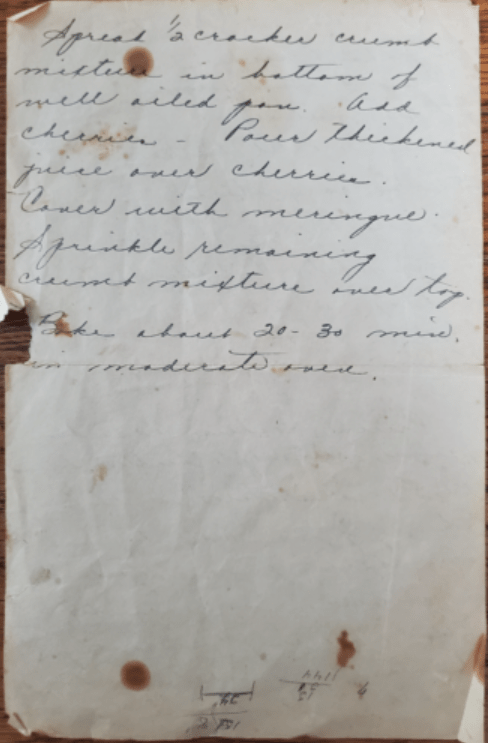 Spread 1/2 cracker crumb
mixture in bottom of
well oiled pan. Add
cherries - Pour thickened
juice over cherries.
Cover with meringue.
Sprinkle remaining
crumb mixture over top.
Bake about 20-30 min.
in moderate oven.